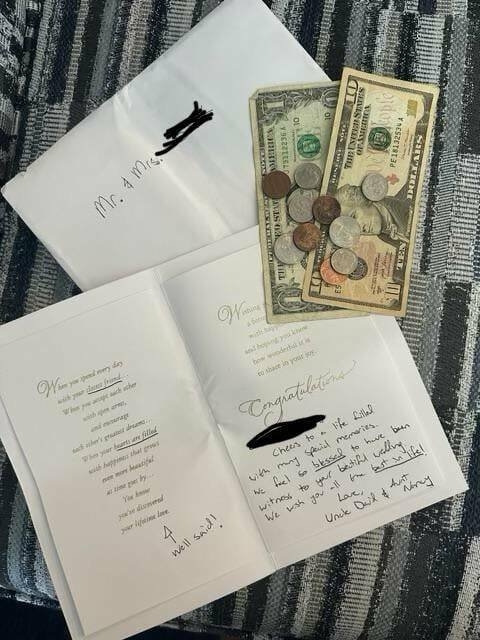 Mr. & Mrs.
ONE
10
TEN
DOLLARS
THE UNITED STATES
PE18132534A
When you spend every day
with your closest friend...
When you accept each other
with open arms,
and encourage
each other's greatest dreams...
When your hearts are filled
with happiness that grows
even more beautiful
as time goes by...
You know
you've discovered
your lifetime love.
↑
Well said!
Wishing
with
and hoping you know
how wonderful it is
to share in your joy.
Congratulations
Cheers to a life filled
with many special memories.
We feel so blessed to have been
witness to your beatiful wedding
We wish you all the best in life!
Love,
Uncle David & Aunt
Nancy